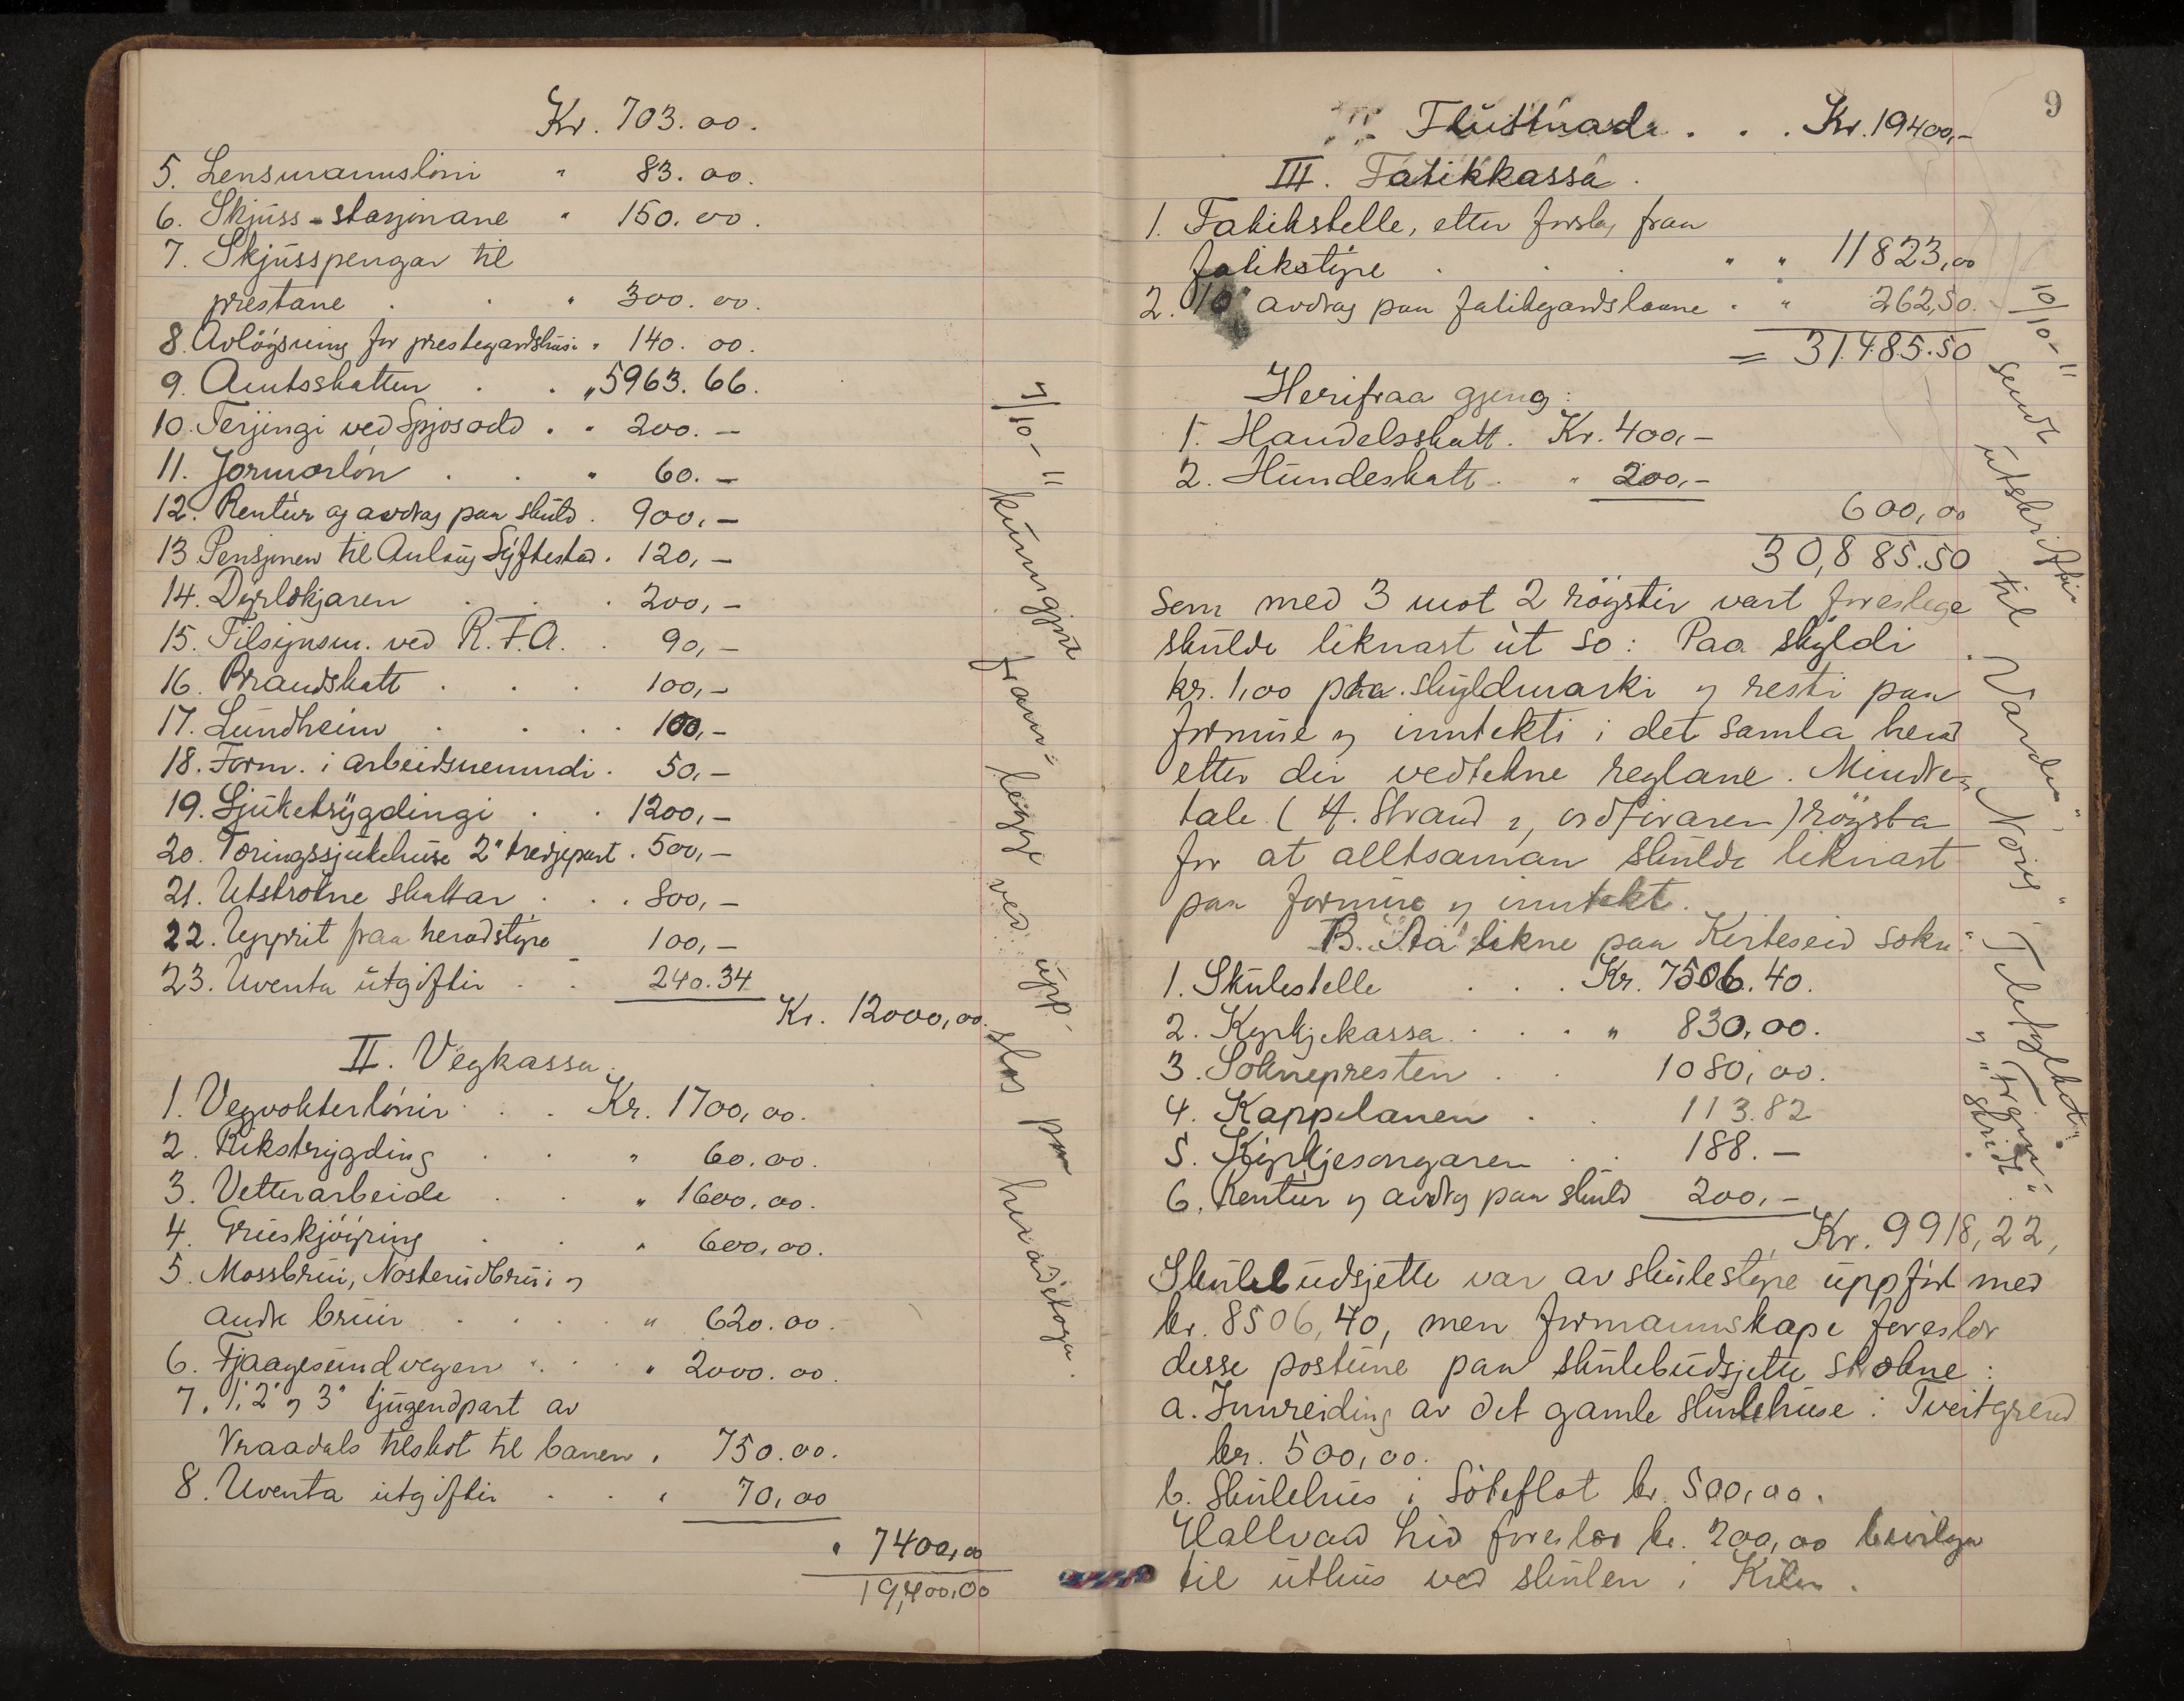 Kr. 703.00.
5. Lensmannsløni " 83.00.
6. Skjuss-stasjonane " 150.00.
7. Skjusspengar til
prestane . . " 300.00.
8. Avløysning for prestegardshusi " 140.00.
9. Amtsskatten . . " 5963.66.
10. Terjingi ved Spjosodd . " 200.—
11. Jormorløn . . " 60.—
12. Rentur og avdrag paa skuld . 900,—
13 Pensjonen til Aulaug Syftestad . 120,—
14. Dyrlækjaren . . . 200,—
15. Tilsynsm. ved R.F.A. . 90,—
16. Brandskatt . . . 100,—
17. Lundheim . . . 100,—
18. Form. i arbeidsnemndi . 50,—
19. Sjuketrygdingi . . 1200,—
20. Tæringssjukehuse 2" tredjepart . 500,—
21. Utstrokne skattar . . . 800,—
22. Upprit fraa heradstyre 100,—
23. Uventa utgiftir . . 240.34
Kr. 12000,00.
II. Vegkassa.
1. Vegvokterlønir . . . Kr. 1700,00.
2. Rikstrygding . . " 60.00.
3. Vetterarbeide . . " 1600.00.
4. Gruskjøyring . . " 600,00.
5. Mossbrui, Nosterudbrui og
andre bruir . . . . " 620.00.
6. Fjaagesundvegen . . . " 2000.00.
7. 1', 2" og 3" tjugendpart av
Vraadals tilskot til banen . 750.00.
8. Uventa utgiftir . . " 70,00
" 7400,00
19,400,00
7/10-11 kunngjort framlegg ved uppslag paa heradstoga.
9
Flutnad . . . Kr. 19400,—
III. Fatikkassa.
1. Fatikstelle, etter forslag fraa
fatikstyre . . . " " 11823,00
2. 10" avdrag paa fatikgardslaane . " 262,50.
= 31.485.50
Herifraa gjeng:
1. Handelsskatt. Kr. 400,—
2. Hundeskatt . " 200,—
600,00
30,885.50
som med 3 mot 2 røystir vart foreslege
skulde liknast ut so: Paa skyldi
kr. 1,00 paa skyldmarki og resti paa
formue og inntekti i det samla herad
etter dei vedtekne reglane. Mindre-
tale (H. Strand og ordføraren) røysta
for at alltsaman skulde liknast
paa formue og inntekt.
B. Aa likne paa Kviteseid sokn:
1. Skulestelle . . . Kr. 7506.40.
2. Kyrkjekassa . . . " 830,00.
3. Soknepresten . . 1080,00.
4. Kappelanen . . 113.82
5. Kyrkjesongaren . . 188.—
6. Rentur og avdrag paa skuld 200,—
Kr. 9918,22,
Skulebudsjette var av skulestyre uppført med
kr. 8506,40, men formannskape foreslær
desse postune paa skulebudsjette strokne:
a. Innreiding av det gamle skulehuse i Tveitgrend
kr. 500,00.
b. Skulehus i Søteflot kr. 500,00.
Hallvard Lid foreslær kr. 200,00 bevilga
til uthus ved skulen i Kilen.
10/10-11 sendt utskriftir til "Varden", "Norig", "Telegbl." og "Frams. Skridt".